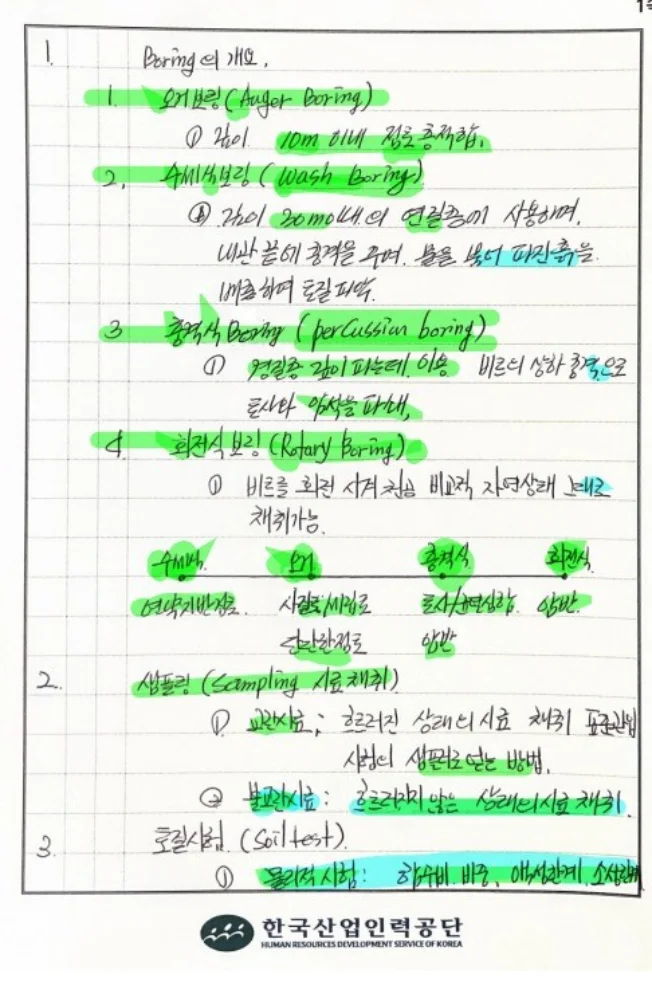 1. Boring의 개요.
1. 오거보링 (Auger Boring)
① 깊이 10m 이내 점토층적합.
2. 수세식보링 (Wash Boring)
① 깊이 30m이내의 연질층에 사용하며,
내관 끝에 충격을 주며. 물을 파진흙을
배출하며 토질파악.
3 충격식 Boring (percussian boring)
① 경질층 깊이 파는데 이용 비트의 상하 충격으로
토사와 암석을 파쇄,
4. 회전식 보링 (Rotary Boring)
① 비트를 회전 시켜 천공 비교적 자연상태 그대로
채취가능.
수세식. 오거 충격식 회전식.
연약지반점토 사질토/ 토사/균열심함. 암반.
단단한점토 암반
2. 샘플링 (Sampling 시료채취)
① 교란시료; 흐트러진 상태의 시료 채취 표준관입
시험의 샘플러로 얻는 방법.
② 불교란시료: 흐트러지지 않는 상태의 시료 채취.
3. 토질시험. (Soil test).
① 물리적 시험: 함수비. 비중, 액성한계. 소성한계
한국산업인력공단
HUMAN RESOURCES DEVELOPMENT SERVICE OF KOREA